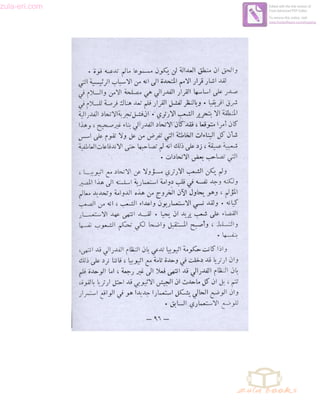 zula-eri.com
Edited with the trial version of
Foxit Advanced PDF Editor
To remove this notice, visit:
www.foxitsoftware.com/shopping
والحق ان منطق العدالة لن يكون مسموعا مالم تدعمه قوة ٠
لقد اشار قرار الامم المتحدة الى انه من الاسباب الرئيسية التي
صدر على اساسها القرار الفدرالي هي مصلحة الامن والسلام في
شرق افريقيا ٠ وبالنظر لفشل القرار فلم تعد هناك فرصة للسلام في
المنطقة الا بتحرير الشعب الارتري ٠ ان فشل تجربة الاتحاد الفدرالية
كان أمرا متوقعا ، فقد كان الاتحاد الفدرالي بناء غير صحيح ، وهذا
شأن كل البناءات الخاطئة التي تفرض من عل ولا تقوم على أسس
شعبية عميقة ، زد على ذلك انه لم تصاحبها حتى الاندفاعات العاطفية
التي تصاحب بعض الاتحادات ٠
ولم يكن الشعب الارتري مسؤولا عن الاتحاد مع اثيوبيا ،
ولكنه وجد نفسه في قلب دوامة استعمارية أسلمته الى هذا المصير
المؤلم ، وهو يحاول الآن الخروج من هذه الدوامة وتحديد معالم
كيانه ٠ ولقد نسي الاستعماريون وأعداء الشعب ، انه من الصعب
القضاء على شعب يريد ان يحيا ، لقد انتهى عهد الاستعمار
والتسلط ، وأصبح المستقبل واضحا لكي تحكم الشعوب نفسها
بنفسها ٠
واذا كانت حكومة اثيوبيا تدعي بأن النظام الفدرالي قد انتهى،
وان ارتريا قد دخلت في وحدة تامة مع اثيوبيا ، فاننا نرد على ذلك
بأن النظام الفدرالي قد انتهى فعلا الى غير رجعة ، اما الوحدة فلم
تتم ، بل ان كل ماحدث ان الجيش الاثيوبي قد احتل ارتريا بالقوة،
وان الوضع الحالي يشكل استعمارا جديدا هو في الواقع استمرار
للوضع الاستعماري السابق ٠
— ٩٦ —
asia books